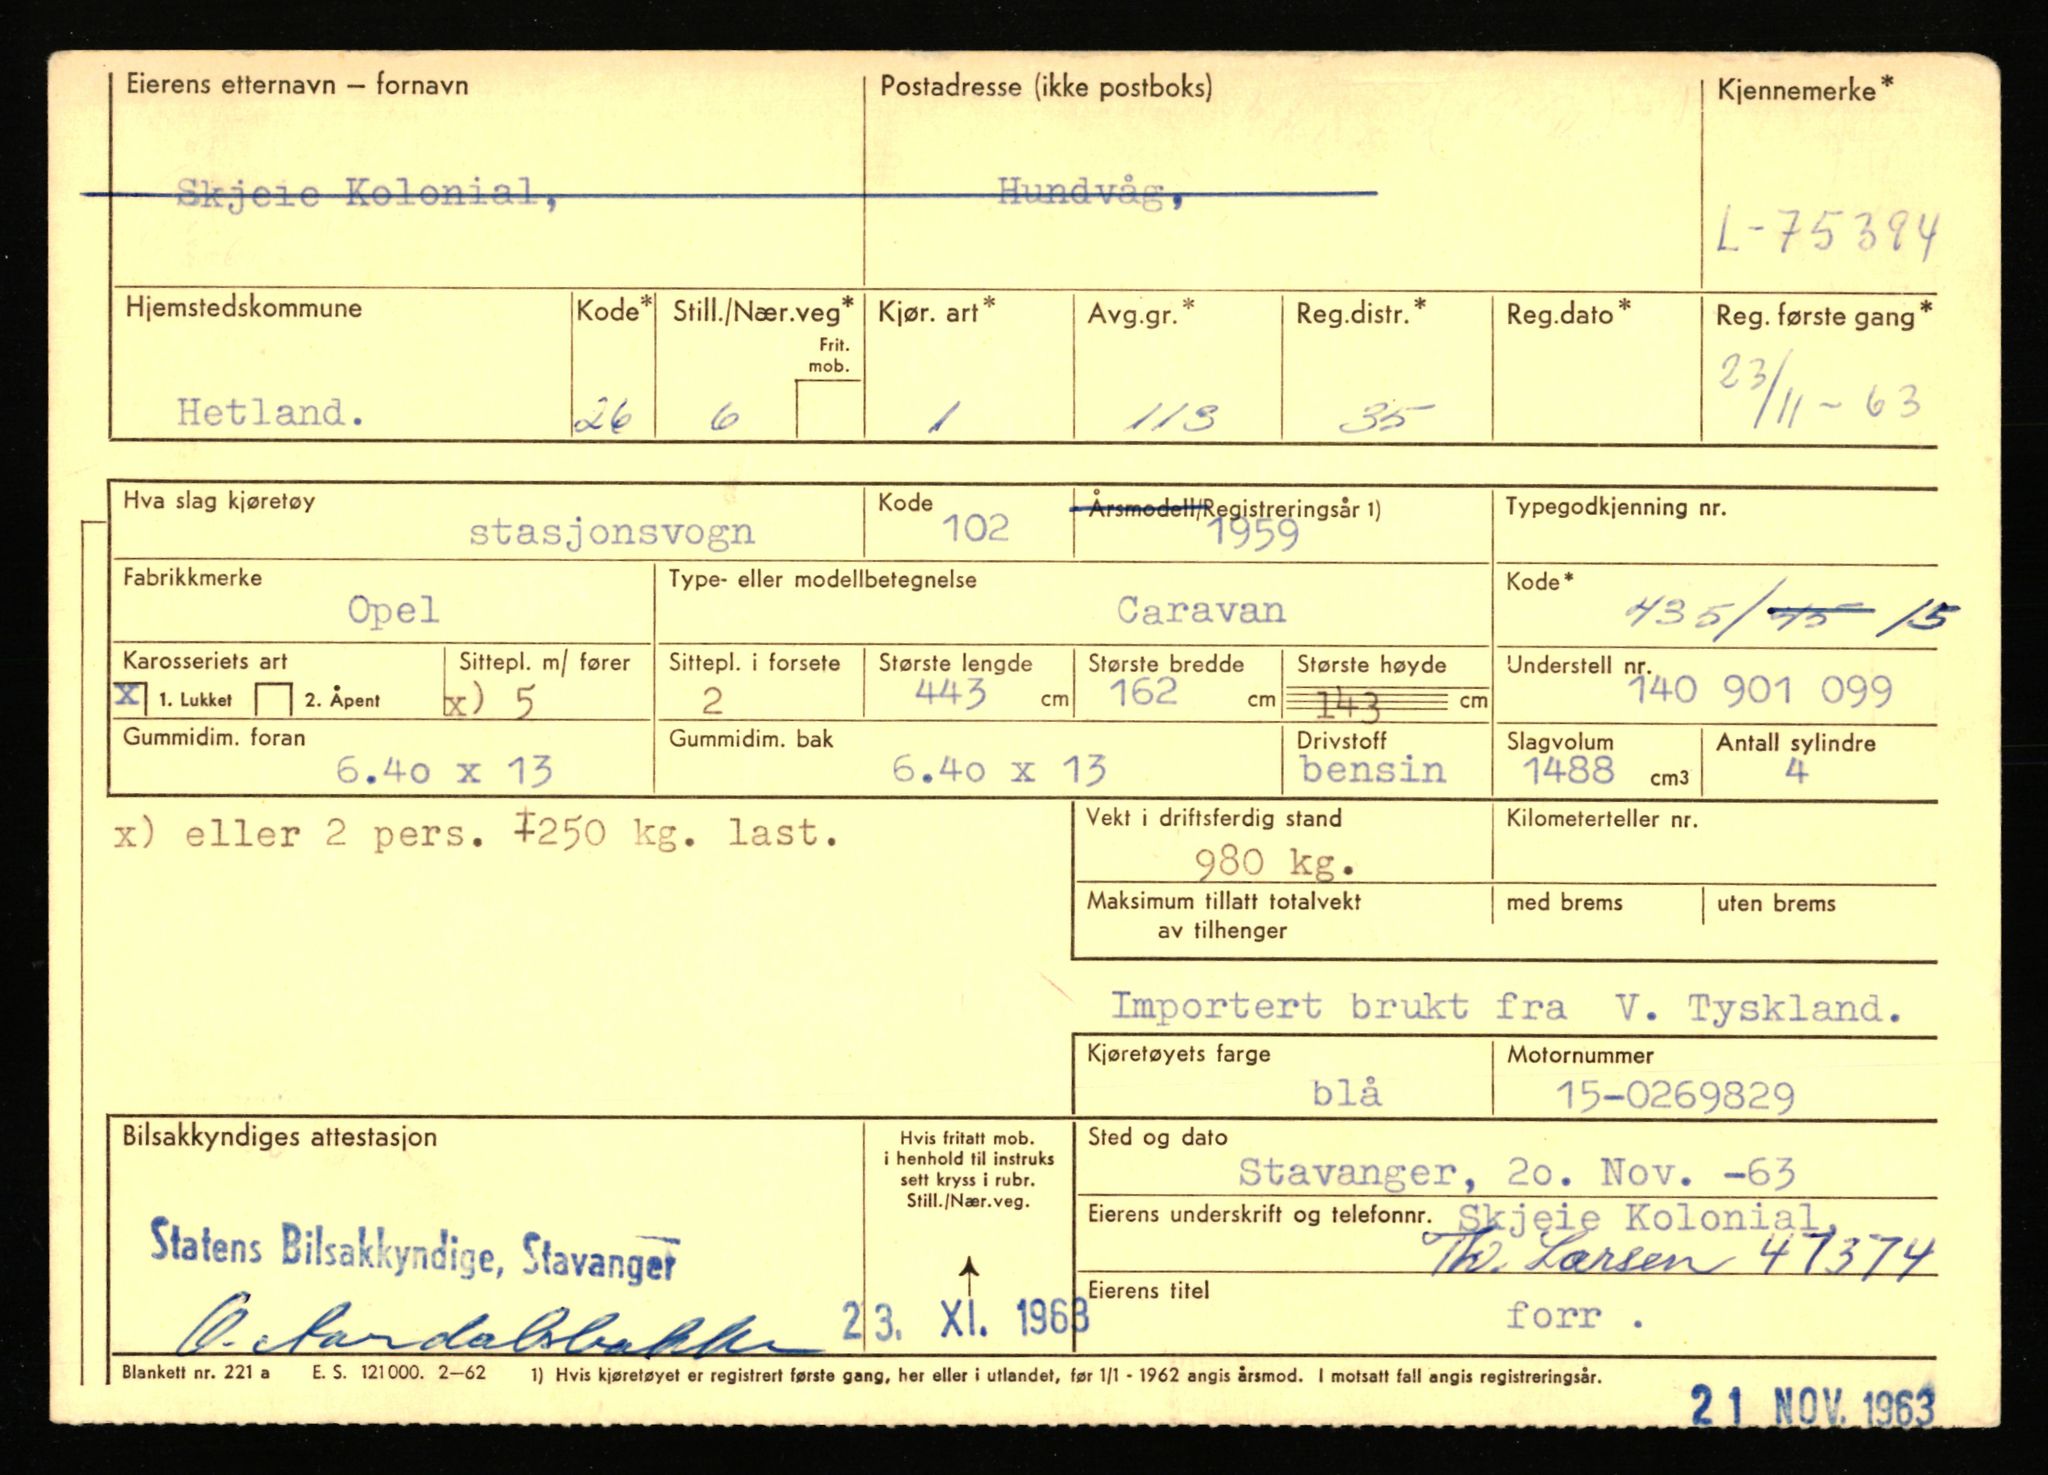 Eierens etternavn – fornavn Postadresse (ikke postboks) Kjennemerke*
Skjeie Kolonial, Hundvåg,
L-75394
Hjemstedskommune Kode* Still./Nær.veg* Kjør. art* Avg.gr.* Reg.distr.* Reg.dato* Reg. første gang*
Frit.
mob.
Hetland. 26 6 1 113 35 23/11-63
Hva slag kjøretøy Kode Årsmodell/Registreringsår 1) Typegodkjenning nr.
stasjonsvogn 102 1959
Fabrikkmerke Type- eller modellbetegnelse Kode*
Opel Caravan 435/45 15
Karosseriets art Sittepl. m/ fører Sittepl. i forsete Største lengde Største bredde Største høyde Understell nr.
x 1. Lukket 2. Åpent x) 5 2 443 cm 162 cm 143 cm 140 901 099
Gummidim. foran Gummidim. bak Drivstoff Slagvolum Antall sylindre
6.40 x 13 6.40 x 13 bensin 1488 cm3 4
x) eller 2 pers. +250 kg. last.
Vekt i driftsferdig stand Kilometerteller nr.
980 kg.
Maksimum tillatt totalvekt med brems uten brems
av tilhenger
Importert brukt fra V. Tyskland.
Kjøretøyets farge Motornummer
blå 15-0269829
Bilsakkyndiges attestasjon Hvis fritatt mob.
i henhold til instruks
sett kryss i rubr.
Still./Nær.veg.
Sted og dato
Stavanger, 20. Nov. -63
Eierens underskrift og telefonnr. Skjeie Kolonial,
Th. Larsen 47374
Statens Bilsakkyndige, Stavanger
O. Aardalsbakke 23. XI. 1963
Eierens titel
forr .
Blankett nr. 221 a E. S. 121000. 2–62 1) Hvis kjøretøyet er registrert første gang, her eller i utlandet, før 1/1 - 1962 angis årsmod. I motsatt fall angis registreringsår.
21 NOV. 1963